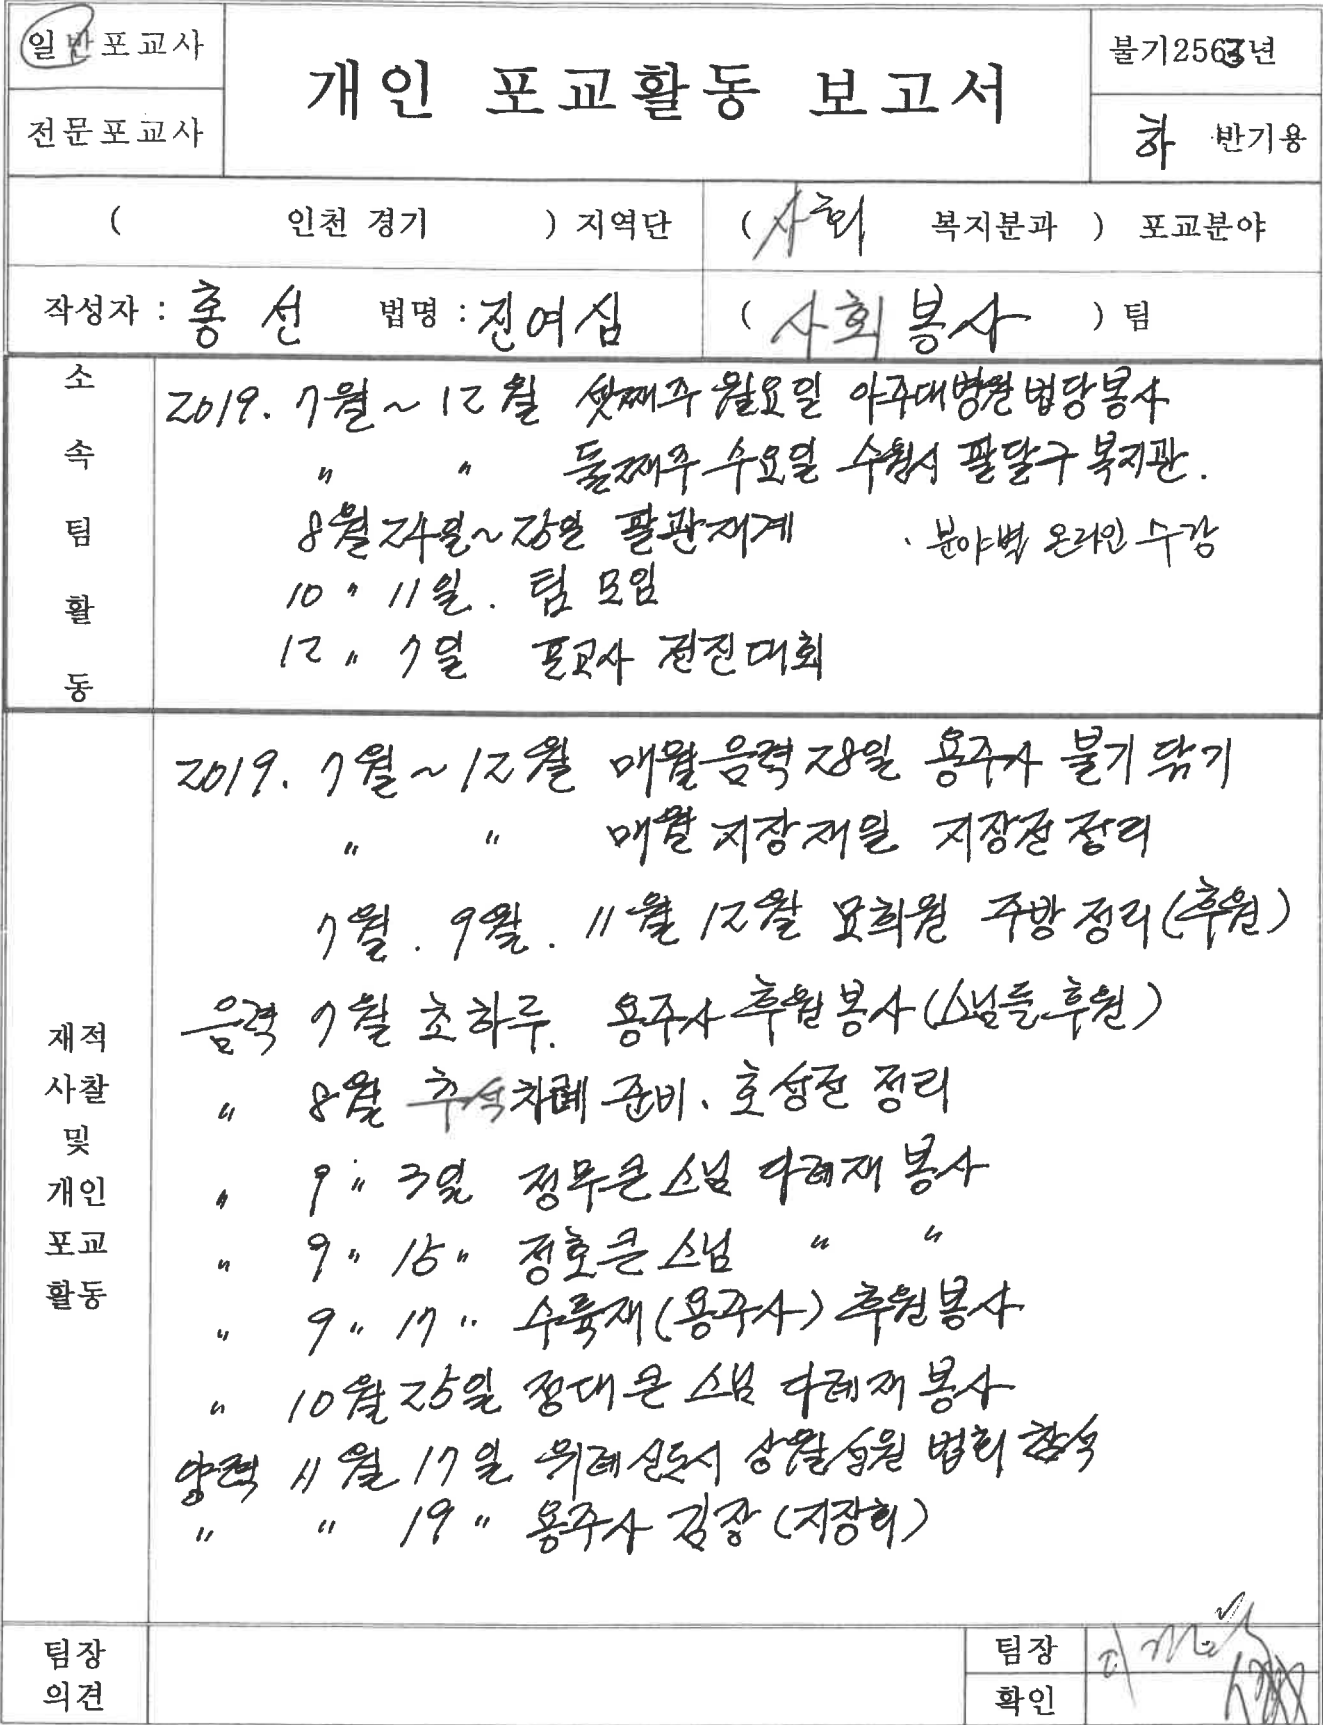 일반포교사
전문포교사
개인 포교활동 보고서
불기2563년
하 반기용
( 인천 경기 ) 지역단
( 사회 복지분과 ) 포교분야
작성자 : 홍 선 법명 : 진여심
( 사회 봉사 ) 팀
소속팀활동
2019. 7월 ~ 12월 셋째주 월요일 아주대병원 법당봉사
〃 〃 둘째주 수요일 수원시 팔달구 복지관.
8월 24일~25일 팔관재계 · 분야별 온라인 수강
10 〃 11일. 팀 모임
12 〃 7일 포교사 전진대회
재적
사찰
및
개인
포교
활동
2019. 7월 ~ 12월 매월 음력 28일 용주사 불기 닦기
〃 〃 매월 지장재일 지장전 정리
7월. 9월. 11월 12월 묘희원 주방 정리(후원)
음력 7월 초하루. 용주사 후원봉사(스님들후원)
〃 8월 추석차례 준비. 호성전 정리
〃 9 〃 3일 정무큰스님 다례재 봉사
〃 9 〃 15 〃 정호큰스님 〃 〃
〃 9 〃 17 〃 수륙재(용주사) 후원봉사
〃 10월 25일 정대큰스님 다례재 봉사
양력 11월 17일 위례신도시 상월선원 법회 참석
〃 〃 19 〃 용주사 김장 (지장회)
팀장
의견
팀장
확인